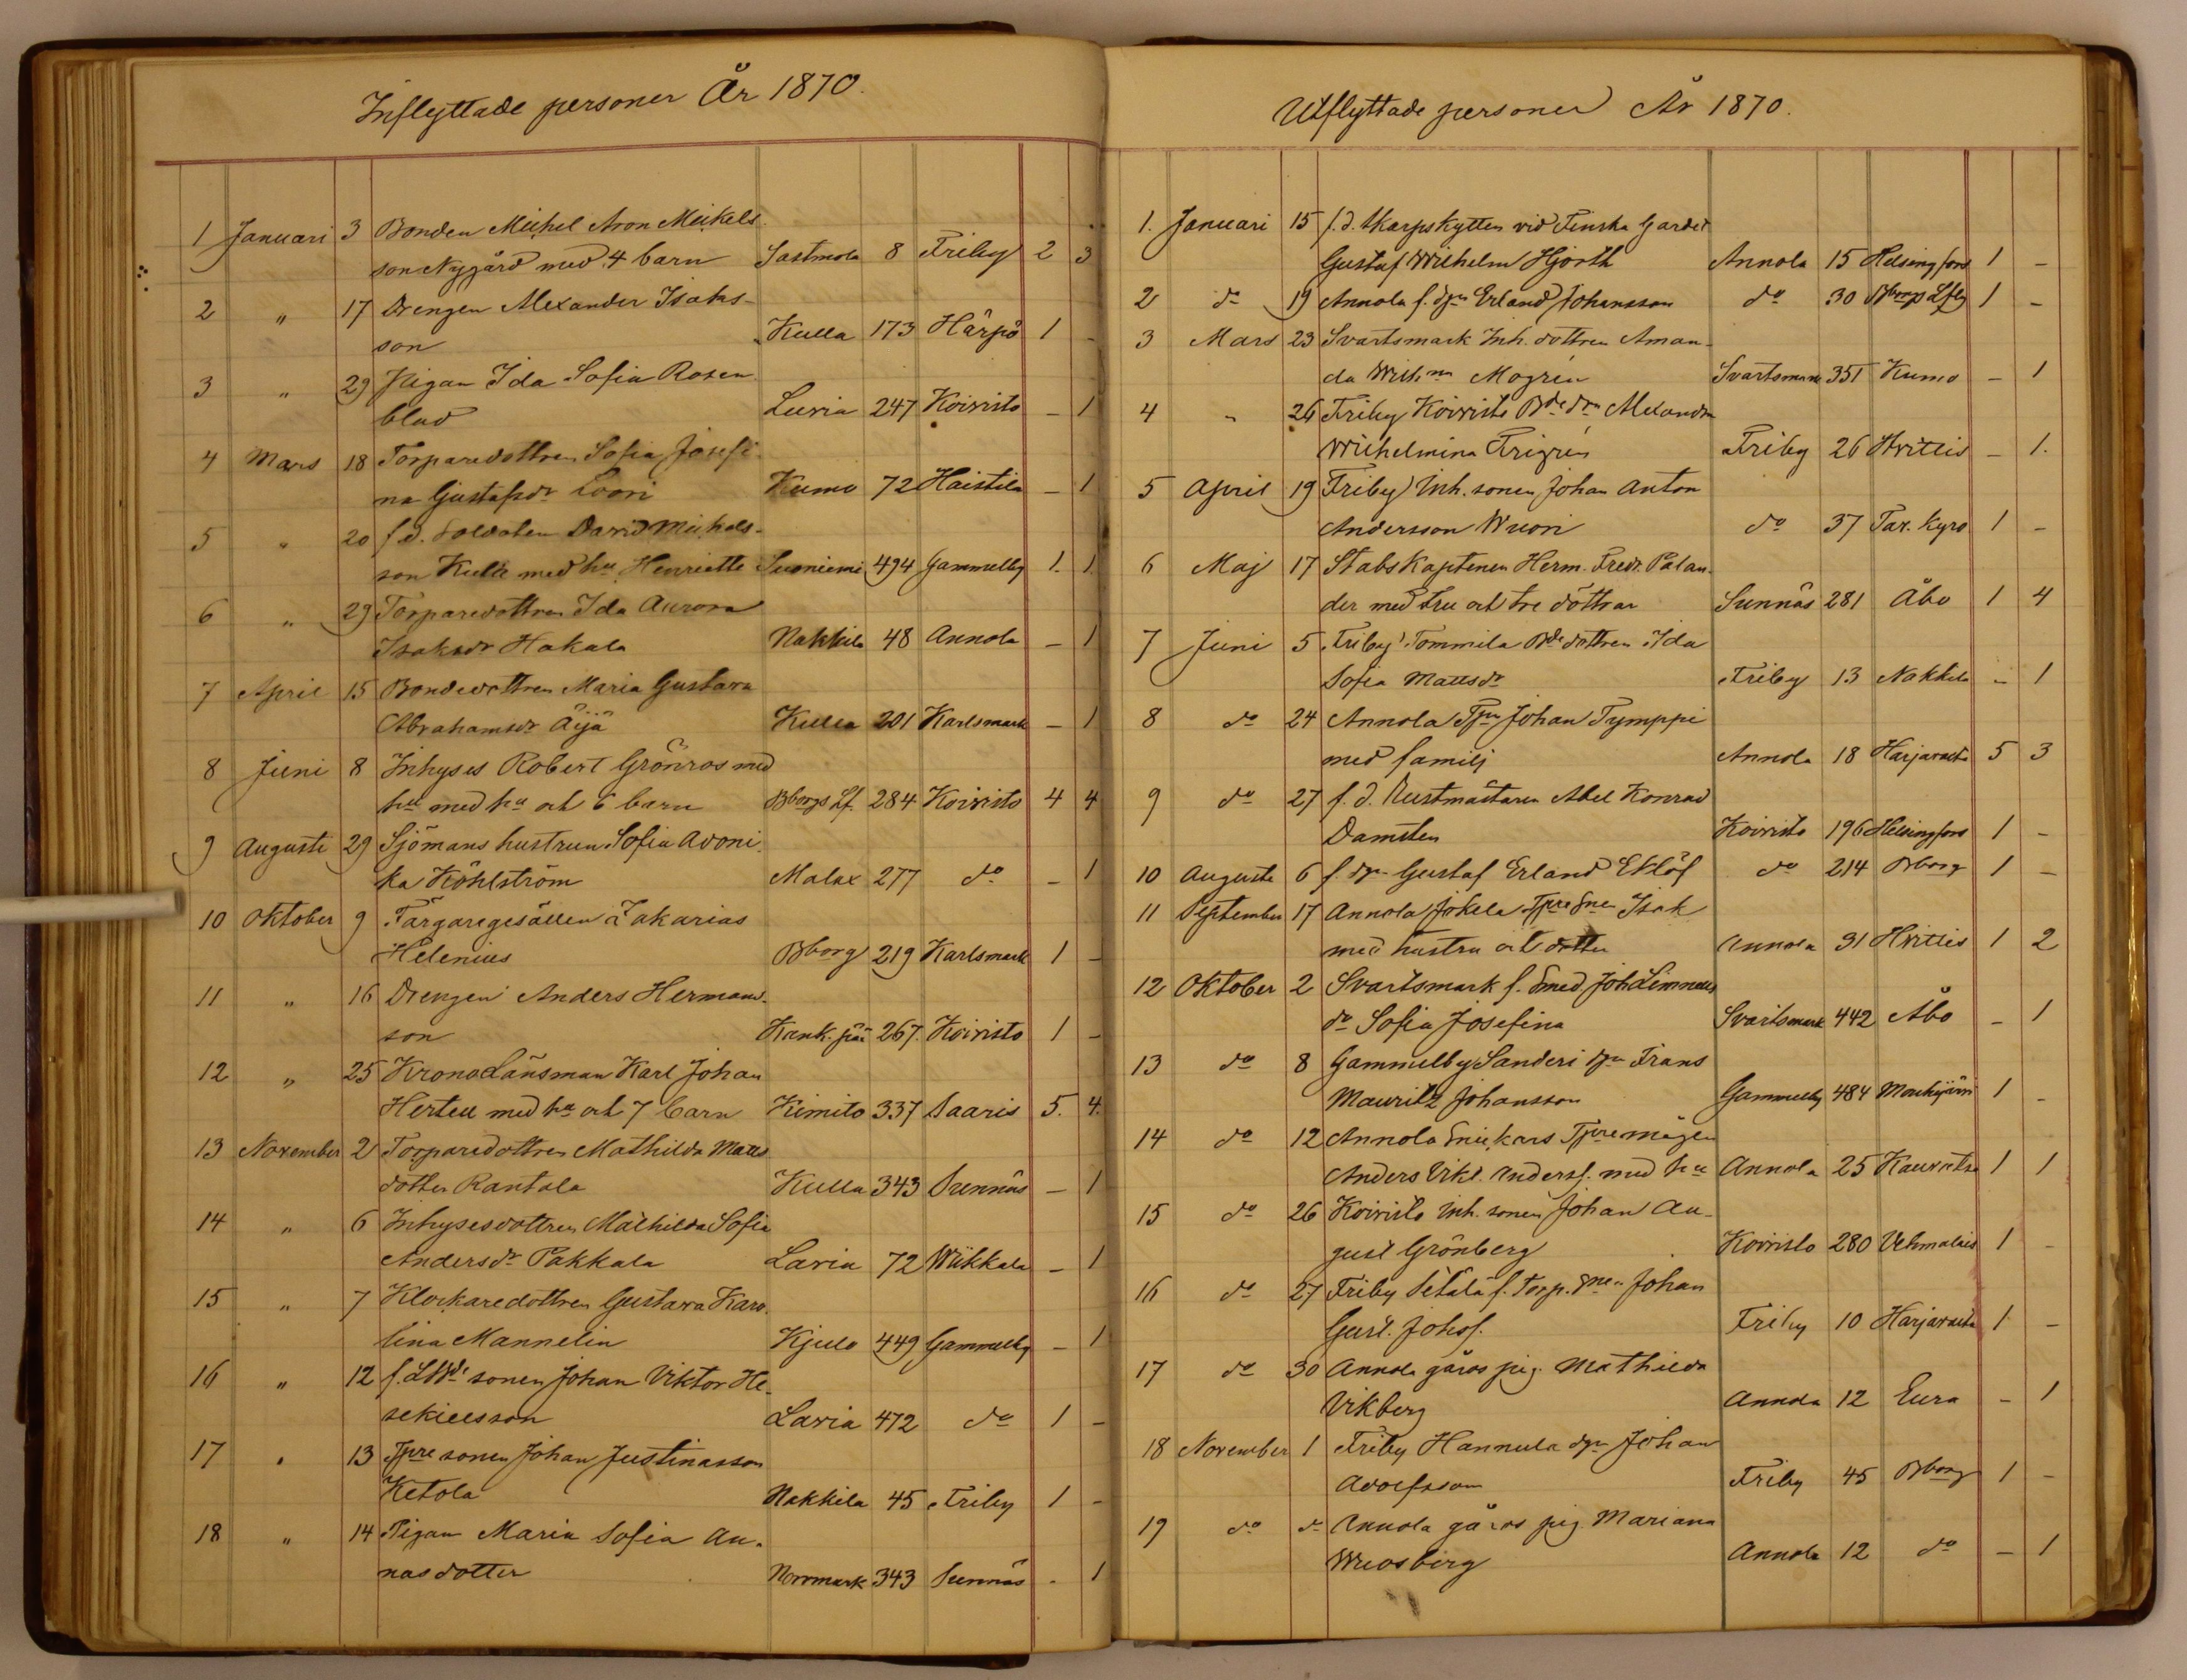 Inflyttade personer År 1870.
1 Januari 3 Bonden Michel Aron Mickels-
son Nygård med 4 barn Sastmola 8 Friby 2 3
2 " 17 Drengen Alexander Isaks-
son Kulla 173 Härpö 1 -
3 " 29 Pigan Ida Sofia Rosen
blad Luvia 247 Koivisto - 1
4 Mars 18 Torparedottren Sofia Josefi-
na Gustafsdr Loori Kumo 72 Haistila - 1
5 " 20 f.d. Soldaten David Michels-
son Kulla med hu Henriette Suoniemi 494 Gammelby 1. 1.
6 " 29 Torparedottren Ida Aurora
Isaksdr Hakala Nakkila 48 Annola - 1
7 April 15 Bondedottren Maria Gustava
Abrahamsdr Äijä Kulla 201 Karlsmark - 1
8 Juni 8 Inhyses Robert Grönros med
hu med hu och 6 barn Bborgs Lf. 284 Koivisto 4 4
9 Augusti 29 Sjömans hustrun Sofia Adoni.
ka Köhlström Malax 277 do - 1
10 Oktober 9 Färgaregesällen Zakarias
Helenius Bborg 219 Karlsmark 1 -
11 " 16 Drengen Anders Hermans-
son Kank.pää 267. Koivisto 1 -
12 " 25 Kronolänsman Karl Johan
Hertell med hu och 7 barn Kimito 337 Saaris 5. 4.
13 November 2 Torparedottren Mathilda Matts
dotter Rantala Kulla 343 Sunnäs - 1
14 " 6 Inhysesdottren Mathilda Sofia
Andersdr Pakkala Lavia 72 Wiikkala - 1
15 " 7 Klockaredottren Gustava Karo.
lina Mannelin Kjulo 449 Gammelby - 1
16 " 12 f. sonen Johan Viktor He-
sekielsson Lavia 472 do 1 -
17 " 13 Tpre sonen Johan Justinasson
Ketola Nakkila 45 Friby 1 -
18 " 14 Pigan Maria Sofia An-
nasdotter Norrmark 343 Sunnäs - 1
Utflyttade personer År 1870.
1. Januari 15 f.d. Skarpskytten vid Finska Gardet
Gustaf Wilhelm Hjorth Annola 15 Helsingfors 1 -
2 do 19 Annola f. dgn Erland Johansson do 30 Bborgs Lfg 1 -
3 Mars 23 Svartsmark Inh. dottren Aman-
da Wilhna Mogrén Svartsmark 351 Kumo - 1
4 " 26 Friby Koivisto Bde drn Alexandra
Wilhelmina Frigrén Friby 26 Hvittis - 1.
5 April 19 Friby Inh. sonen Johan Anton
Andersson Wuori do 37 Tav. Kyro 1 -
6 Maj 17 Stabskaptenen Herm. Fredr. Palan-
der med fru och tre döttrar Sunnäs 281 Åbo 1 4
7 Juni 5 Friby Tommila Bde dottren Ida
Sofia Mattsdr Friby 13 Nakkila - 1
8 do 24 Annola Tpn Johan Tymppi
med familj Annola 18 Harjavalta 5 3
9 do 27 f.d. Rustmästaren Abel Konrad
Damstén Koivisto 196 Helsingfors 1 -
10 Augusti 6 f. dgn Gustaf Erland Eklöf do 214 Bborg 1 -
11 September 17 Annola Jokela Tpre Snen Isak
med hustru och dotter Annola 31 Hvittis 1 2
12 Oktober 2 Svartsmark f. Smed Joh Limnells
dr Sofia Josefina Svartsmark 442 Åbo - 1
13 do 8 Gammelby Sanderi dgn Frans
Mauritz Johansson Gammelby 484 Mouhijärvi 1 -
14 do 12 Annola Snickars Tpremågen
Anders Vikt. Andersf. med hu Annola 25 Kauvatsa 1 1
15 do 26 Koivisto Inh. sonen Johan Au-
gust Grönberg Koivisto 280 Vehmalais 1 -
16 do 27 Friby Sétälä f. Torp. Snen Johan
Gust. Johsf. Friby 10 Harjavalta 1 -
17 do 30 Annola gårds pig. Mathilda
Vikberg Annola 12 Eura - 1
18 November 1 Friby Hannula dgn Johan
Adolfsson Friby 45 Bborg 1 -
19 do do Annola gårds pig. Mariana
Wuosberg Annola 12 do - 1